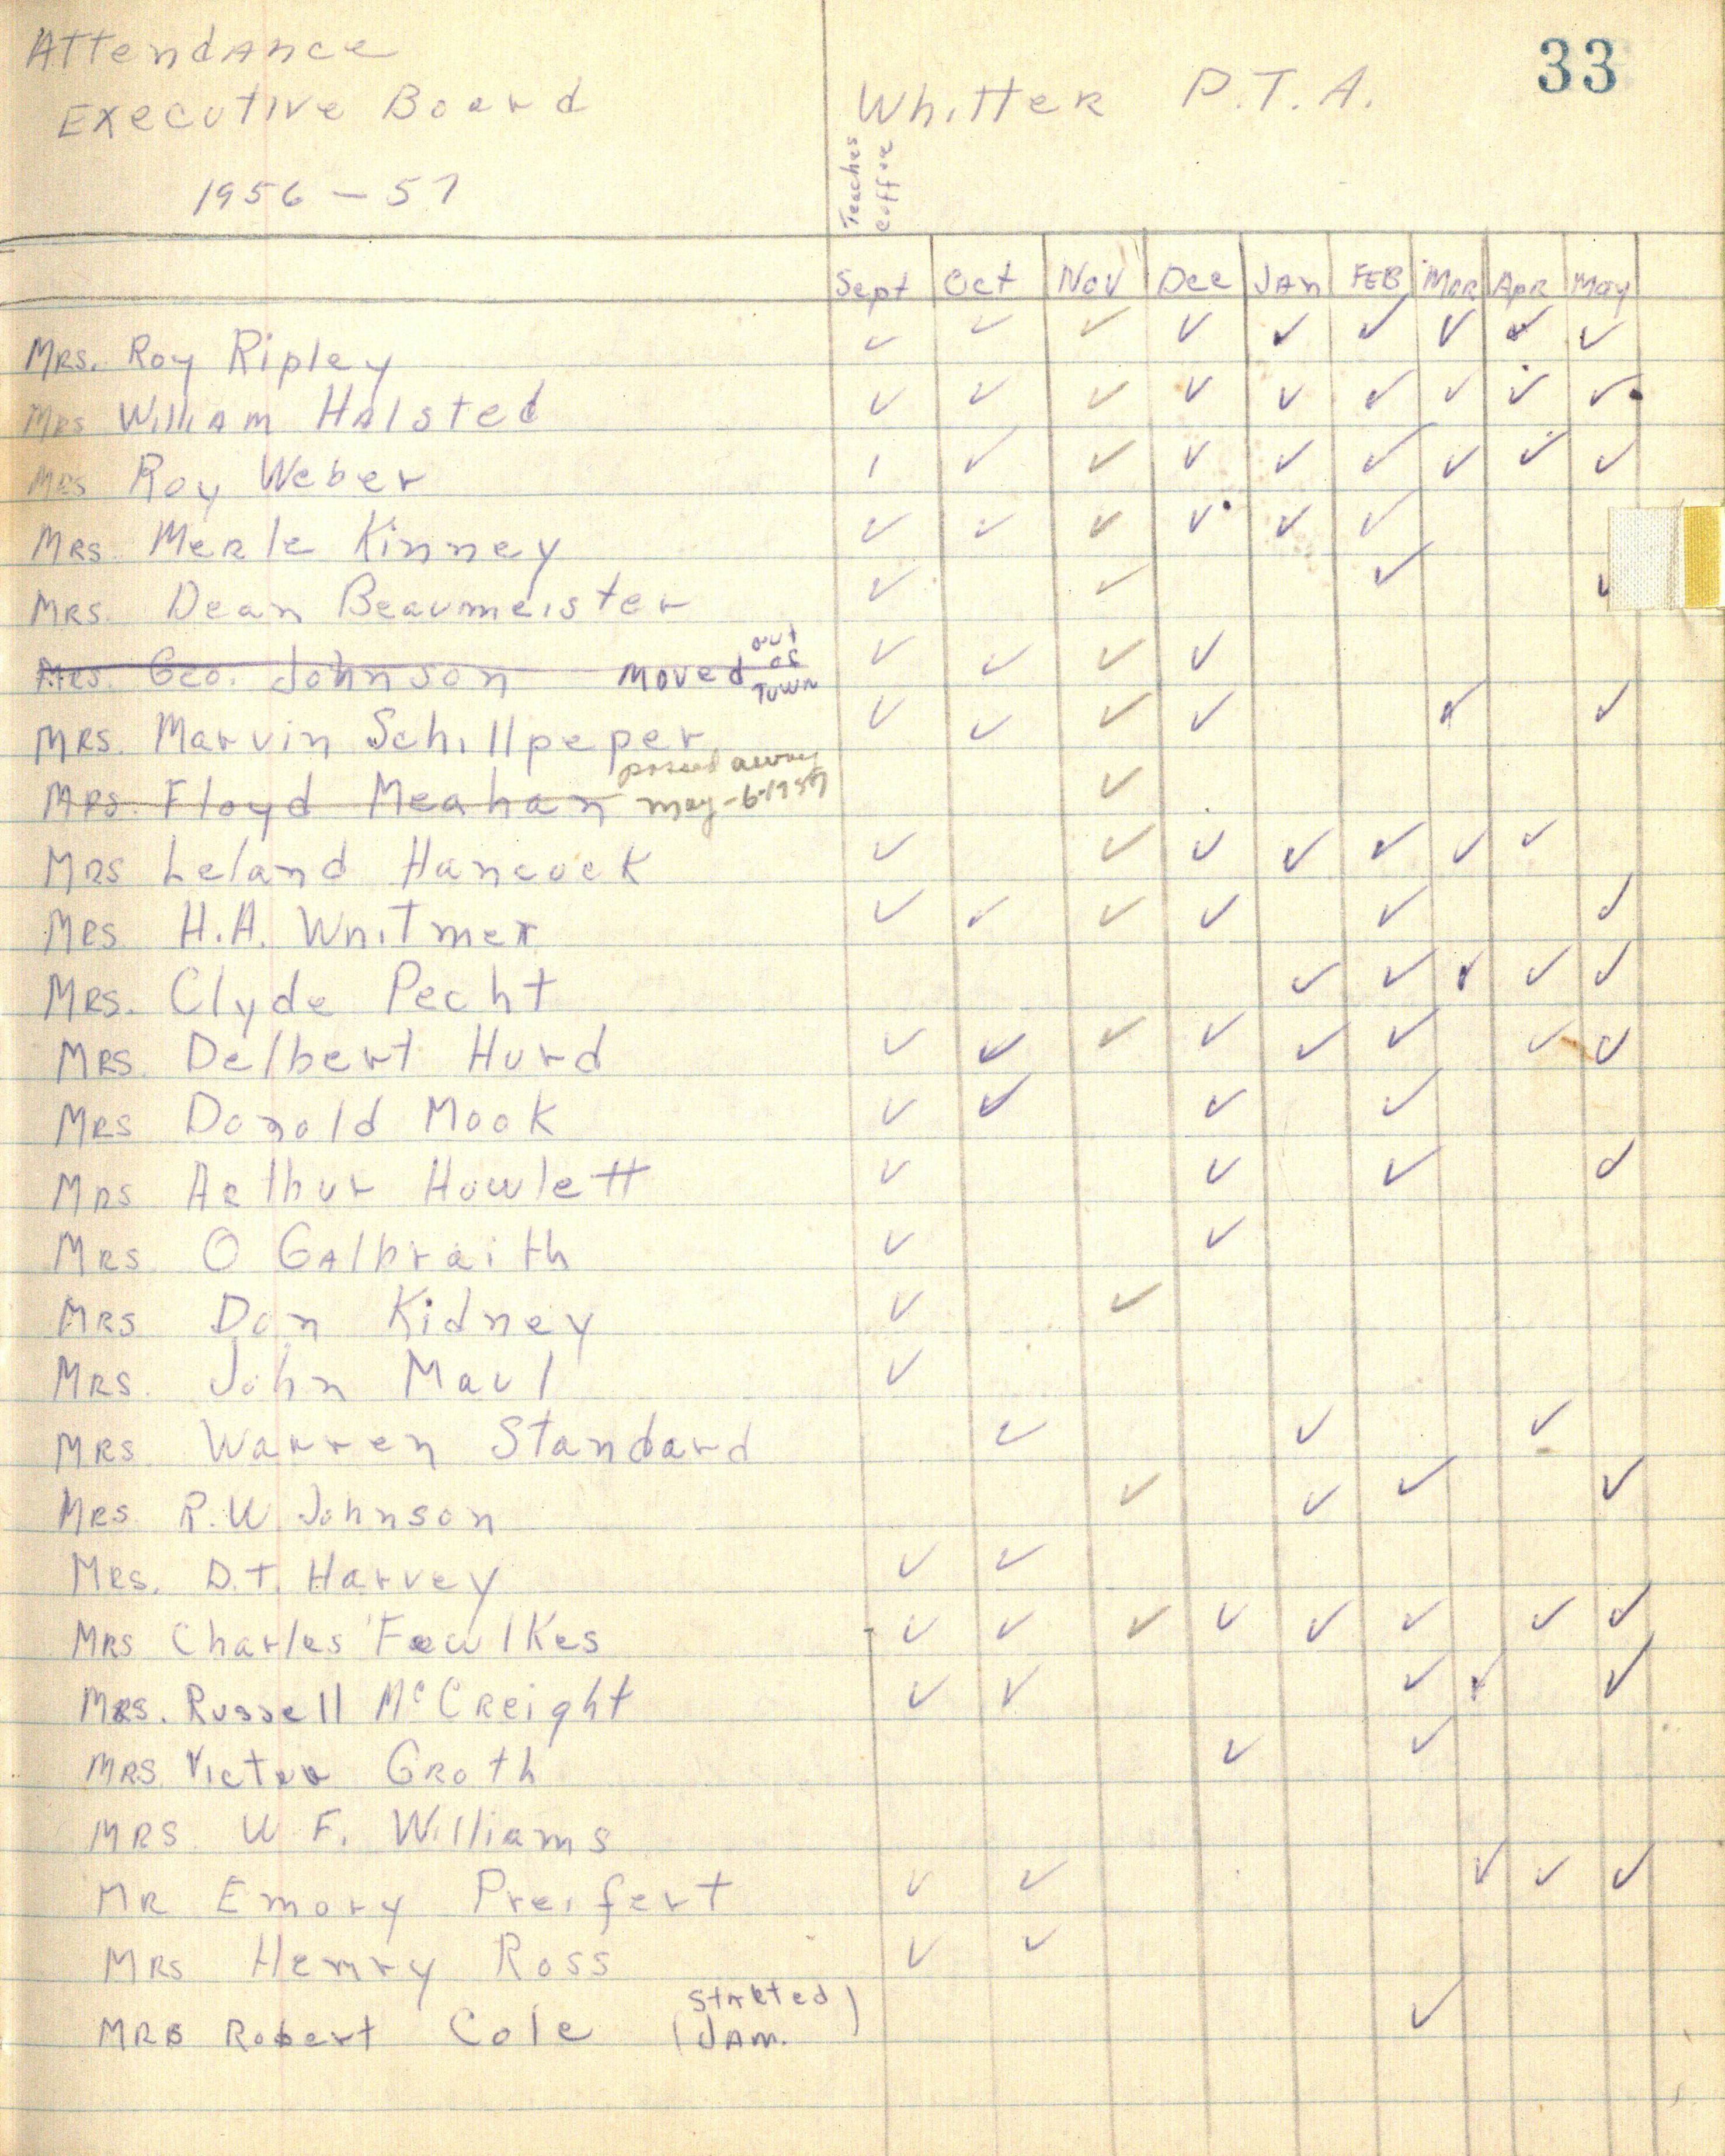 33
Attendance
Executive Board Whitter P.T.A.
1956 - 57
Teaches
coffee
Sept Oct Nov Dec JAn FEB MAR Apr May
MRS. Roy Ripley ✓ ✓ ✓ ✓ ✓ ✓ ✓ ✓ ✓
MRS William HAlsted ✓ ✓ ✓ ✓ ✓ ✓ ✓ ✓ ✓
MRS Roy Weber ✓ ✓ ✓ ✓ ✓ ✓ ✓ ✓ ✓
MRS. Merle Kinney ✓ ✓ ✓ ✓ ✓ ✓
MRS. Dean Beaumeister ✓ ✓ ✓ ✓
MRS. Geo. Johnson moved out of Town ✓ ✓ ✓ ✓
MRS. Marvin Schillpeper ✓ ✓ ✓ ✓ ✓ ✓
MRS. Floyd Meahan passed away may-6-1957 ✓
MRS Leland Hancock ✓ ✓ ✓ ✓ ✓ ✓ ✓
MRS H.A. Whitmer ✓ ✓ ✓ ✓ ✓ ✓
MRS. Clyde Pecht ✓ ✓ ✓ ✓ ✓
MRS. Delbert Hurd ✓ ✓ ✓ ✓ ✓ ✓ ✓ ✓
MRS Donald Mook ✓ ✓ ✓ ✓
MRS Arthur Howlett ✓ ✓ ✓ ✓
MRS. O GAlbraith ✓ ✓
MRS Don Kidney ✓ ✓
MRS. John Maul ✓
MRS Warren Standard ✓ ✓ ✓
MRS. R.W. Johnson ✓ ✓ ✓ ✓
MRS. D.T. Harvey ✓ ✓
MRS Charles Fowlkes ✓ ✓ ✓ ✓ ✓ ✓ ✓ ✓
MRS. Russell McCreight ✓ ✓ ✓ ✓ ✓
MRS. Victor Groth ✓ ✓
MRS. W F. Williams
MR Emory Preifert ✓ ✓ ✓ ✓ ✓
MRS Henry Ross ✓ ✓
MRS Robert Cole (Started JAn.) ✓